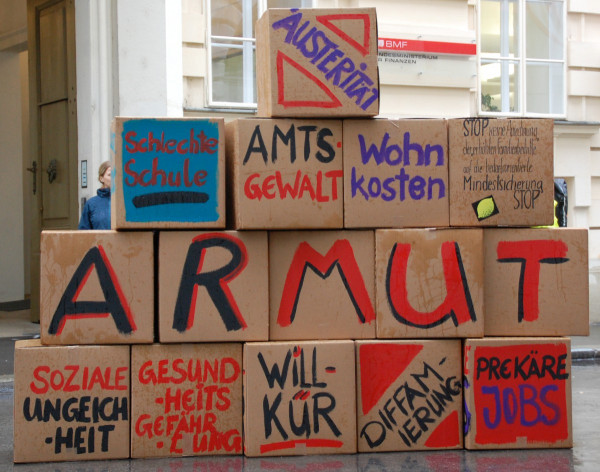 AUSTERITÄT
BMF
NDESMINISTERIUM
R FINANZEN
Schlechte
Schule
AMTS-
GEWALT
Wohn
kosten
STOP keine Anrechnung
der erhöhten Familienbeihilfe
auf die bedarfsorientierte
Mindestsicherung
STOP
ARMUT
SOZIALE
UNGEICH
-HEIT
GESUND
-HEITS
GEFÄHR
WILL-
KÜR
DIFFAM-
IERUNG
PREKÄRE
JOBS